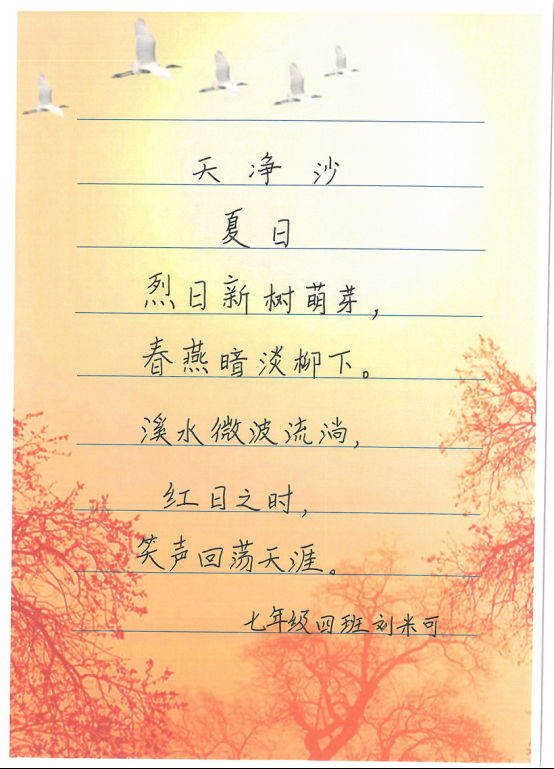 天净沙
夏日
烈日新树萌芽，
春燕暗淡柳下。
溪水微波流淌，
红日之时，
笑声回荡天涯。
七年级四班刘米可